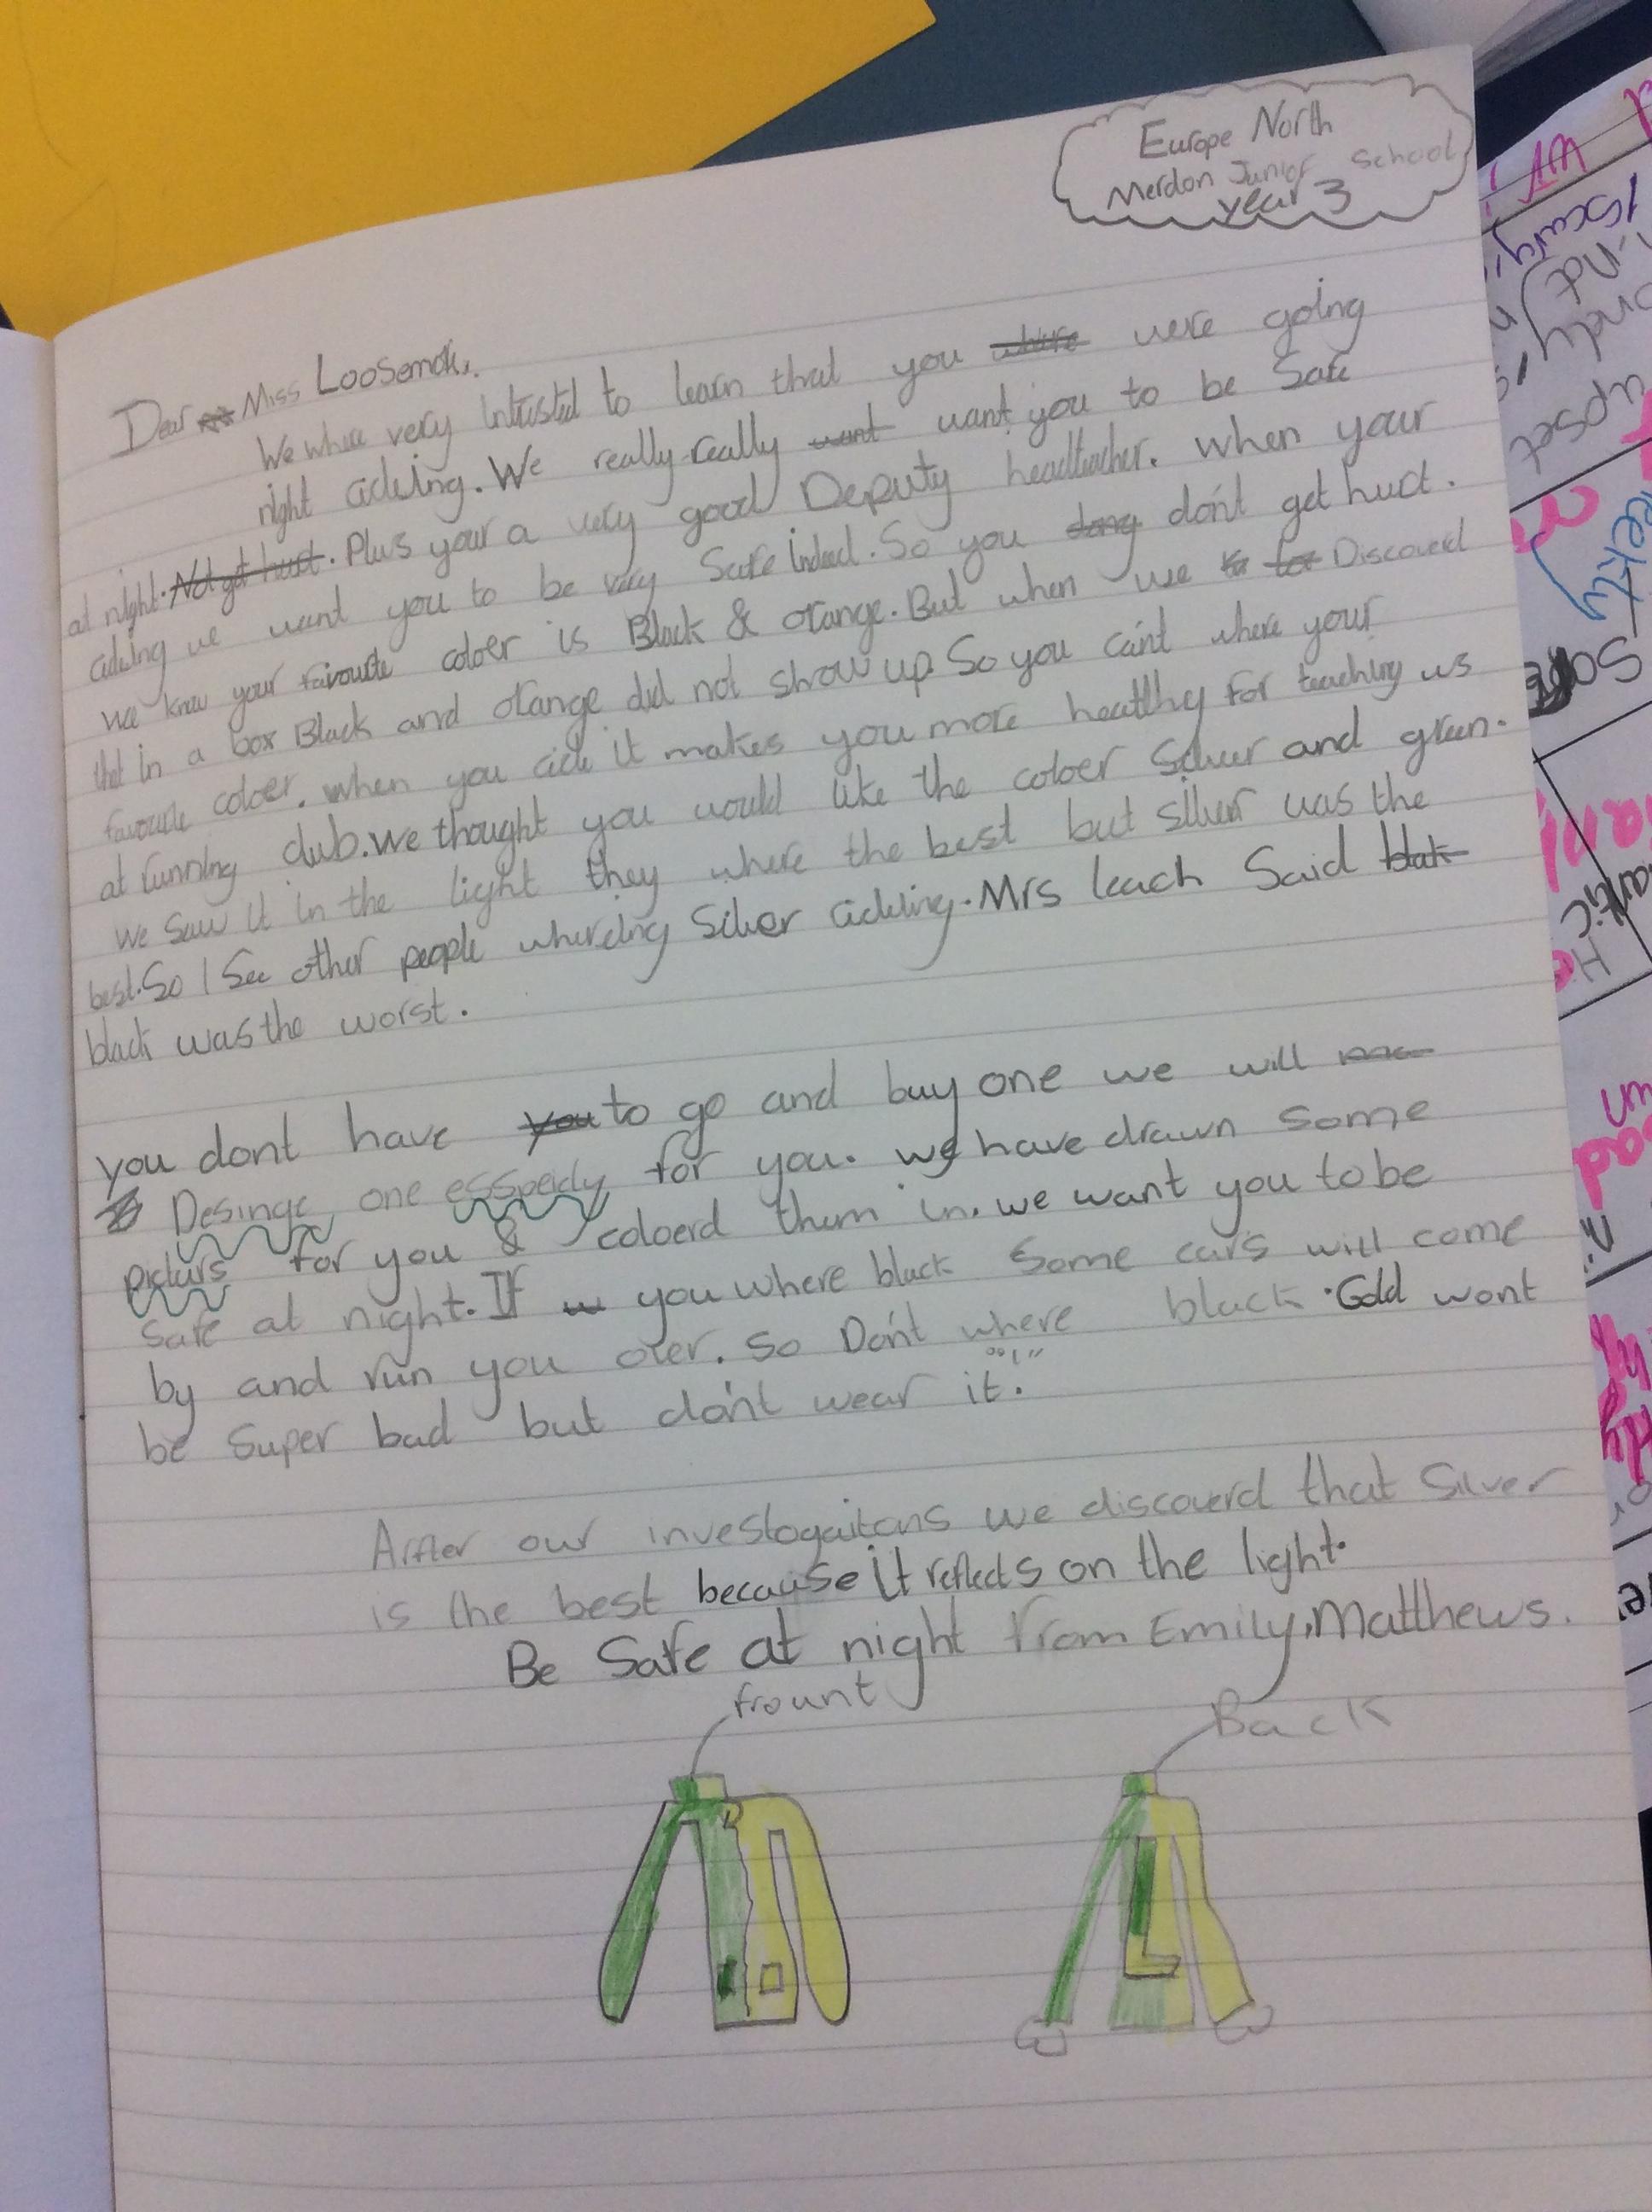 Europe North
Merdon Junior School
year 3
Dear Miss Loosemok,.
We where very intrested to learn that you where were going
night cicking. We really really want want you to be Safe
at night. Not get hurt. Plus your a very good Deputy headteacher. when your
cicking we want you to be very Safe indeed. So you dont get hurt.
we know your favourite coloer is Black & orange. But when we for Discoverd
that in a box Black and orange did not show up. So you can't where your
favourite coloer. when you cicle it makes you more healthy for teaching us
at running club. we thought you would like the coloer Silver and green.
we saw it in the light they where the best but silver was the
best. So I See other people whereing Silver cickling. Mrs leach Said blak
black was the worst.
you dont have you to go and buy one we will
Desinge one esspecily for you. we have drawn some
picturs for you & coloerd them in. we want you to be
safe at night. If you where black Some cars will come
by and run you over. So Don't where black. Gold wont
be super bad but don't wear it.
Affter our investogaitons we discoverd that Silver
is the best because it reflects on the light.
Be Safe at night from Emily, Matthews.
frount
Back
L